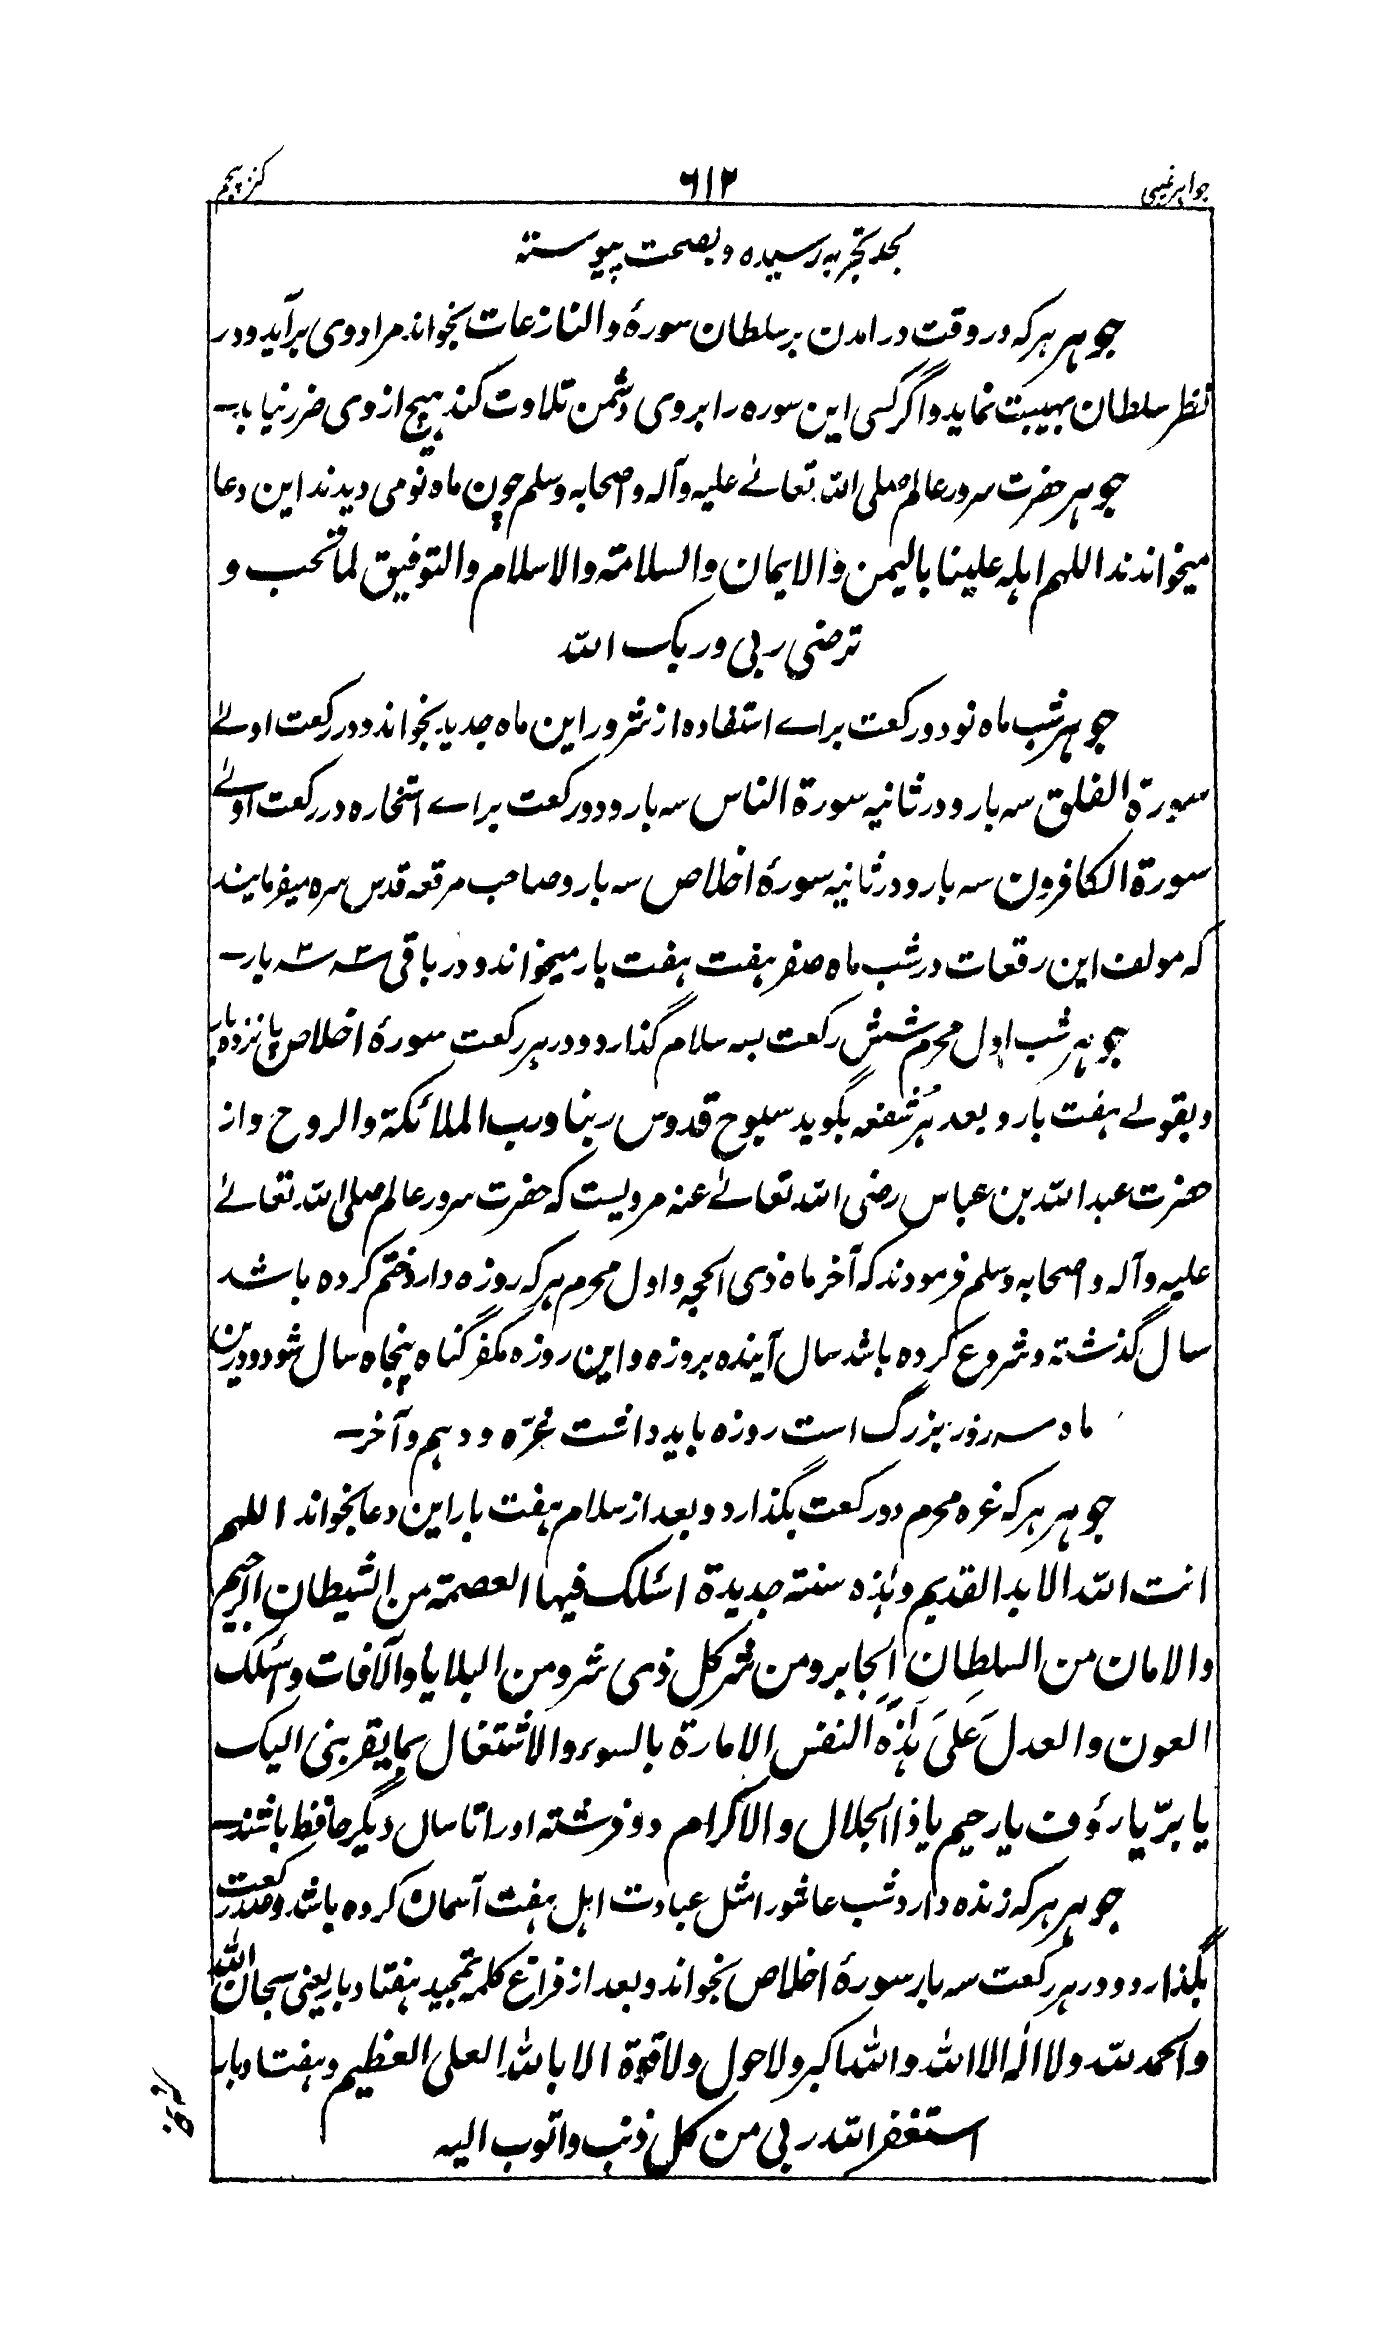 جواہر غیبی ۶۱۲ کنز پنجم
بحد تجربہ رسیدہ و بصحت پیوستہ
جوہر ہر کہ در وقت در امدن بر سلطان سورۂ والنازعات بخواند مراد وی برآید و در
نظر سلطان بہیبت نماید و اگر کسی این سورہ را بروی دشمن تلاوت کند ہیچ ازوی ضرر نیابد۔
جوہر حضرت سرور عالم صلی اللہ تعالےٰ علیہ و آلہ و اصحابہ و سلم چون ماہ نو می دیدند این دعا
میخواندند اللہم اہلہ علینا بالیمن والایمان والسلامتہ والاسلام والتوفیق لما تحب و
ترضی ربی وربک اللہ
جوہر شب ماہ نو دو رکعت براے استفادہ از شرور این ماہ جدید بخواند و در رکعت اولےٰ
سورۃ الفلق سہ بار و در ثانیہ سورۃ الناس سہ بار و دو رکعت براے استخارہ در رکعت اولےٰ
سورۃ الکافرون سہ بار و در ثانیہ سورۂ اخلاص سہ بار و صاحب مرقعہ قدس سرہ میفرمایند
کہ مولف این رقعات در شب ماہ صفر ہفت ہفت بار میخواند و در باقی سہ سہ بار۔
جوہر شب اول محرم شش رکعت بسہ سلام گذارد و در ہر رکعت سورۂ اخلاص پانزدہ بار
و بقولے ہفت بار و بعد ہر شفعہ بگوید سبوح قدوس ربنا ورب الملائکۃ والروح و از
حضرت عبد اللہ بن عباس رضی اللہ تعالےٰ عنہ مرویست کہ حضرت سرور عالم صلی اللہ تعالےٰ
علیہ و آلہ و اصحابہ وسلم فرمودند کہ آخر ماہ ذی الحجہ و اول محرم ہر کہ روزہ دارد ختم کردہ باشد
سال گذشتہ و شروع کردہ باشد سال آیندہ بروزہ و این روزہ مکفر گناہ پنجاہ سال شود و درین
ماہ سہ روز بزرگ است روزہ باید داشت غرّہ و دہم و آخر۔
جوہر ہر کہ غرہ محرم دو رکعت بگذارد و بعد از سلام ہفت بار این دعا بخواند اللہم
انت اللہ الابد القدیم وہٰذہ سنتہ جدیدۃ اسئلک فیہا العصمتہ من الشیطان الرجیم
والامان من السلطان الجابر ومن شر کل ذی شر ومن البلایا والآفات واسئلک
العون والعدل عَلیَ ہٰذہَ النفس الامارۃ بالسوء والاشتغال بما یقربنی الیک
یا برّ یا رؤف یا رحیم یا ذا الجلال والاکرام دو فرشتہ او را تا سال دیگر حافظ باشند۔
جوہر ہر کہ زندہ دارد شب عاشورا مثل عبادت اہل ہفت آسمان کردہ باشد و صد رکعت
بگذارد و در ہر رکعت سہ بار سورۂ اخلاص بخواند و بعد از فراغ کلمہ تمجید ہفتاد بار یعنی سبحان اللہ
والحمد للہ ولا الٰہ الا اللہ واللہ اکبر ولا حول ولا قوۃ الا باللہ العلی العظیم و ہفتاد بار
استغفر اللہ ربی من کل ذنب واتوب الیہ